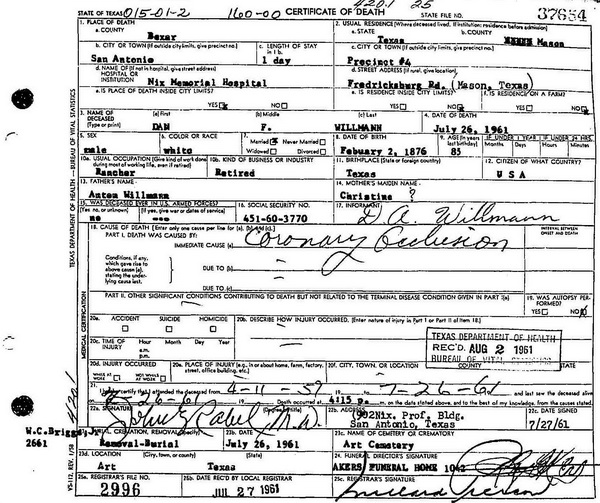 STATE OF TEXAS 015-01-2 160-00 CERTIFICATE OF DEATH 420.1 25 STATE FILE NO. 37654
1. PLACE OF DEATH
a. COUNTY
Bexar
2. USUAL RESIDENCE (Where deceased lived. If institution: residence before admission)
a. STATE
Texas
b. COUNTY
Mason
b. CITY OR TOWN (If outside city limits, give precinct no.)
San Antonio
c. LENGTH OF STAY in 1 b.
1 day
c. CITY OR TOWN (If outside city limits, give precinct no.)
Precinct #4
d. NAME OF (If not in hospital, give street address)
HOSPITAL OR
INSTITUTION
Nix Memorial Hospital
d. STREET ADDRESS (If rural, give location)
Fredricksburg Rd. (Mason, Texas)
e. IS PLACE OF DEATH INSIDE CITY LIMITS?
YES NO
e. IS RESIDENCE INSIDE CITY LIMITS?
YES NO
f. IS RESIDENCE ON A FARM?
YES NO
3. NAME OF
DECEASED
(Type or print)
(a) First
DAN
(b) Middle
F.
(c) Last
WILLMANN
4. DATE OF DEATH
July 26, 1961
5. SEX
male
6. COLOR OR RACE
white
7. Married Never Married
Widowed Divorced
8. DATE OF BIRTH
Febuary 2, 1876
9. AGE (In years last birthday)
85
IF UNDER 1 YEAR
Months Days
IF UNDER 24 HRS.
Hours Min.
10a. USUAL OCCUPATION (Give kind of work done during most of working life, even if retired)
Rancher
10b. KIND OF BUSINESS OR INDUSTRY
Retired
11. BIRTHPLACE (State or foreign country)
Texas
12. CITIZEN OF WHAT COUNTRY?
U S A
13. FATHER'S NAME
Anton Willmann
14. MOTHER'S MAIDEN NAME
Christine ?
15. WAS DECEASED EVER IN U.S. ARMED FORCES?
(Yes, no, or unknown) (If yes, give war or dates of service)
no ---
16. SOCIAL SECURITY NO.
451-60-3770
17. INFORMANT
D. A. Willmann
18. CAUSE OF DEATH [Enter only one cause per line for (a), (b) and (c).]
PART I. DEATH WAS CAUSED BY:
IMMEDIATE CAUSE (a)
Coronary Occlusion
INTERVAL BETWEEN
ONSET AND DEATH
Conditions, if any,
which gave rise to
above cause (a),
stating the underlying
cause last.
DUE TO (b)
DUE TO (c)
PART II. OTHER SIGNIFICANT CONDITIONS CONTRIBUTING TO DEATH BUT NOT RELATED TO THE TERMINAL DISEASE CONDITION GIVEN IN PART I(a)
19. WAS AUTOPSY PERFORMED?
YES NO
20a. ACCIDENT SUICIDE HOMICIDE
20b. DESCRIBE HOW INJURY OCCURRED. (Enter nature of injury in Part I or Part II of Item 18.)
20c. TIME OF INJURY
Hour Month Day Year
a.m.
p.m.
TEXAS DEPARTMENT OF HEALTH
REC'D AUG 2 1961
BUREAU OF VITAL STATISTICS
20d. INJURY OCCURRED
WHILE AT WORK NOT WHILE AT WORK
20e. PLACE OF INJURY (e.g., in or about home, farm, factory, street, office building, etc.)
20f. CITY, TOWN, OR LOCATION COUNTY STATE
21. I hereby certify that I attended the deceased from 4-11-59 to 7-26-61 and last saw the deceased alive
7-26-61 Death occurred at 4:15 p.m. on the date stated above, and to the best of my knowledge, from the causes stated.
22a. SIGNATURE (Degree or title)
M.D.
22b. ADDRESS
902 Nix, Prof. Bldg.
San Antonio, Texas
22c. DATE SIGNED
7/27/61
W.C. Briggs, Jr.
2661
23a. BURIAL, CREMATION, REMOVAL (Specify)
Removal-Burial
23b. DATE
July 26, 1961
23c. NAME OF CEMETERY OR CREMATORY
Art Cemetery
23d. LOCATION
Art Texas
24. FUNERAL DIRECTOR'S SIGNATURE
AKERS FUNERAL HOME 1042
25a. REGISTRAR'S FILE NO.
2996
25b. DATE REC'D BY LOCAL REGISTRAR
JUL 27 1961
25c. REGISTRAR'S SIGNATURE
TEXAS DEPARTMENT OF HEALTH — BUREAU OF VITAL STATISTICS
MEDICAL CERTIFICATION
420.1
VS-112, REV. 1/58